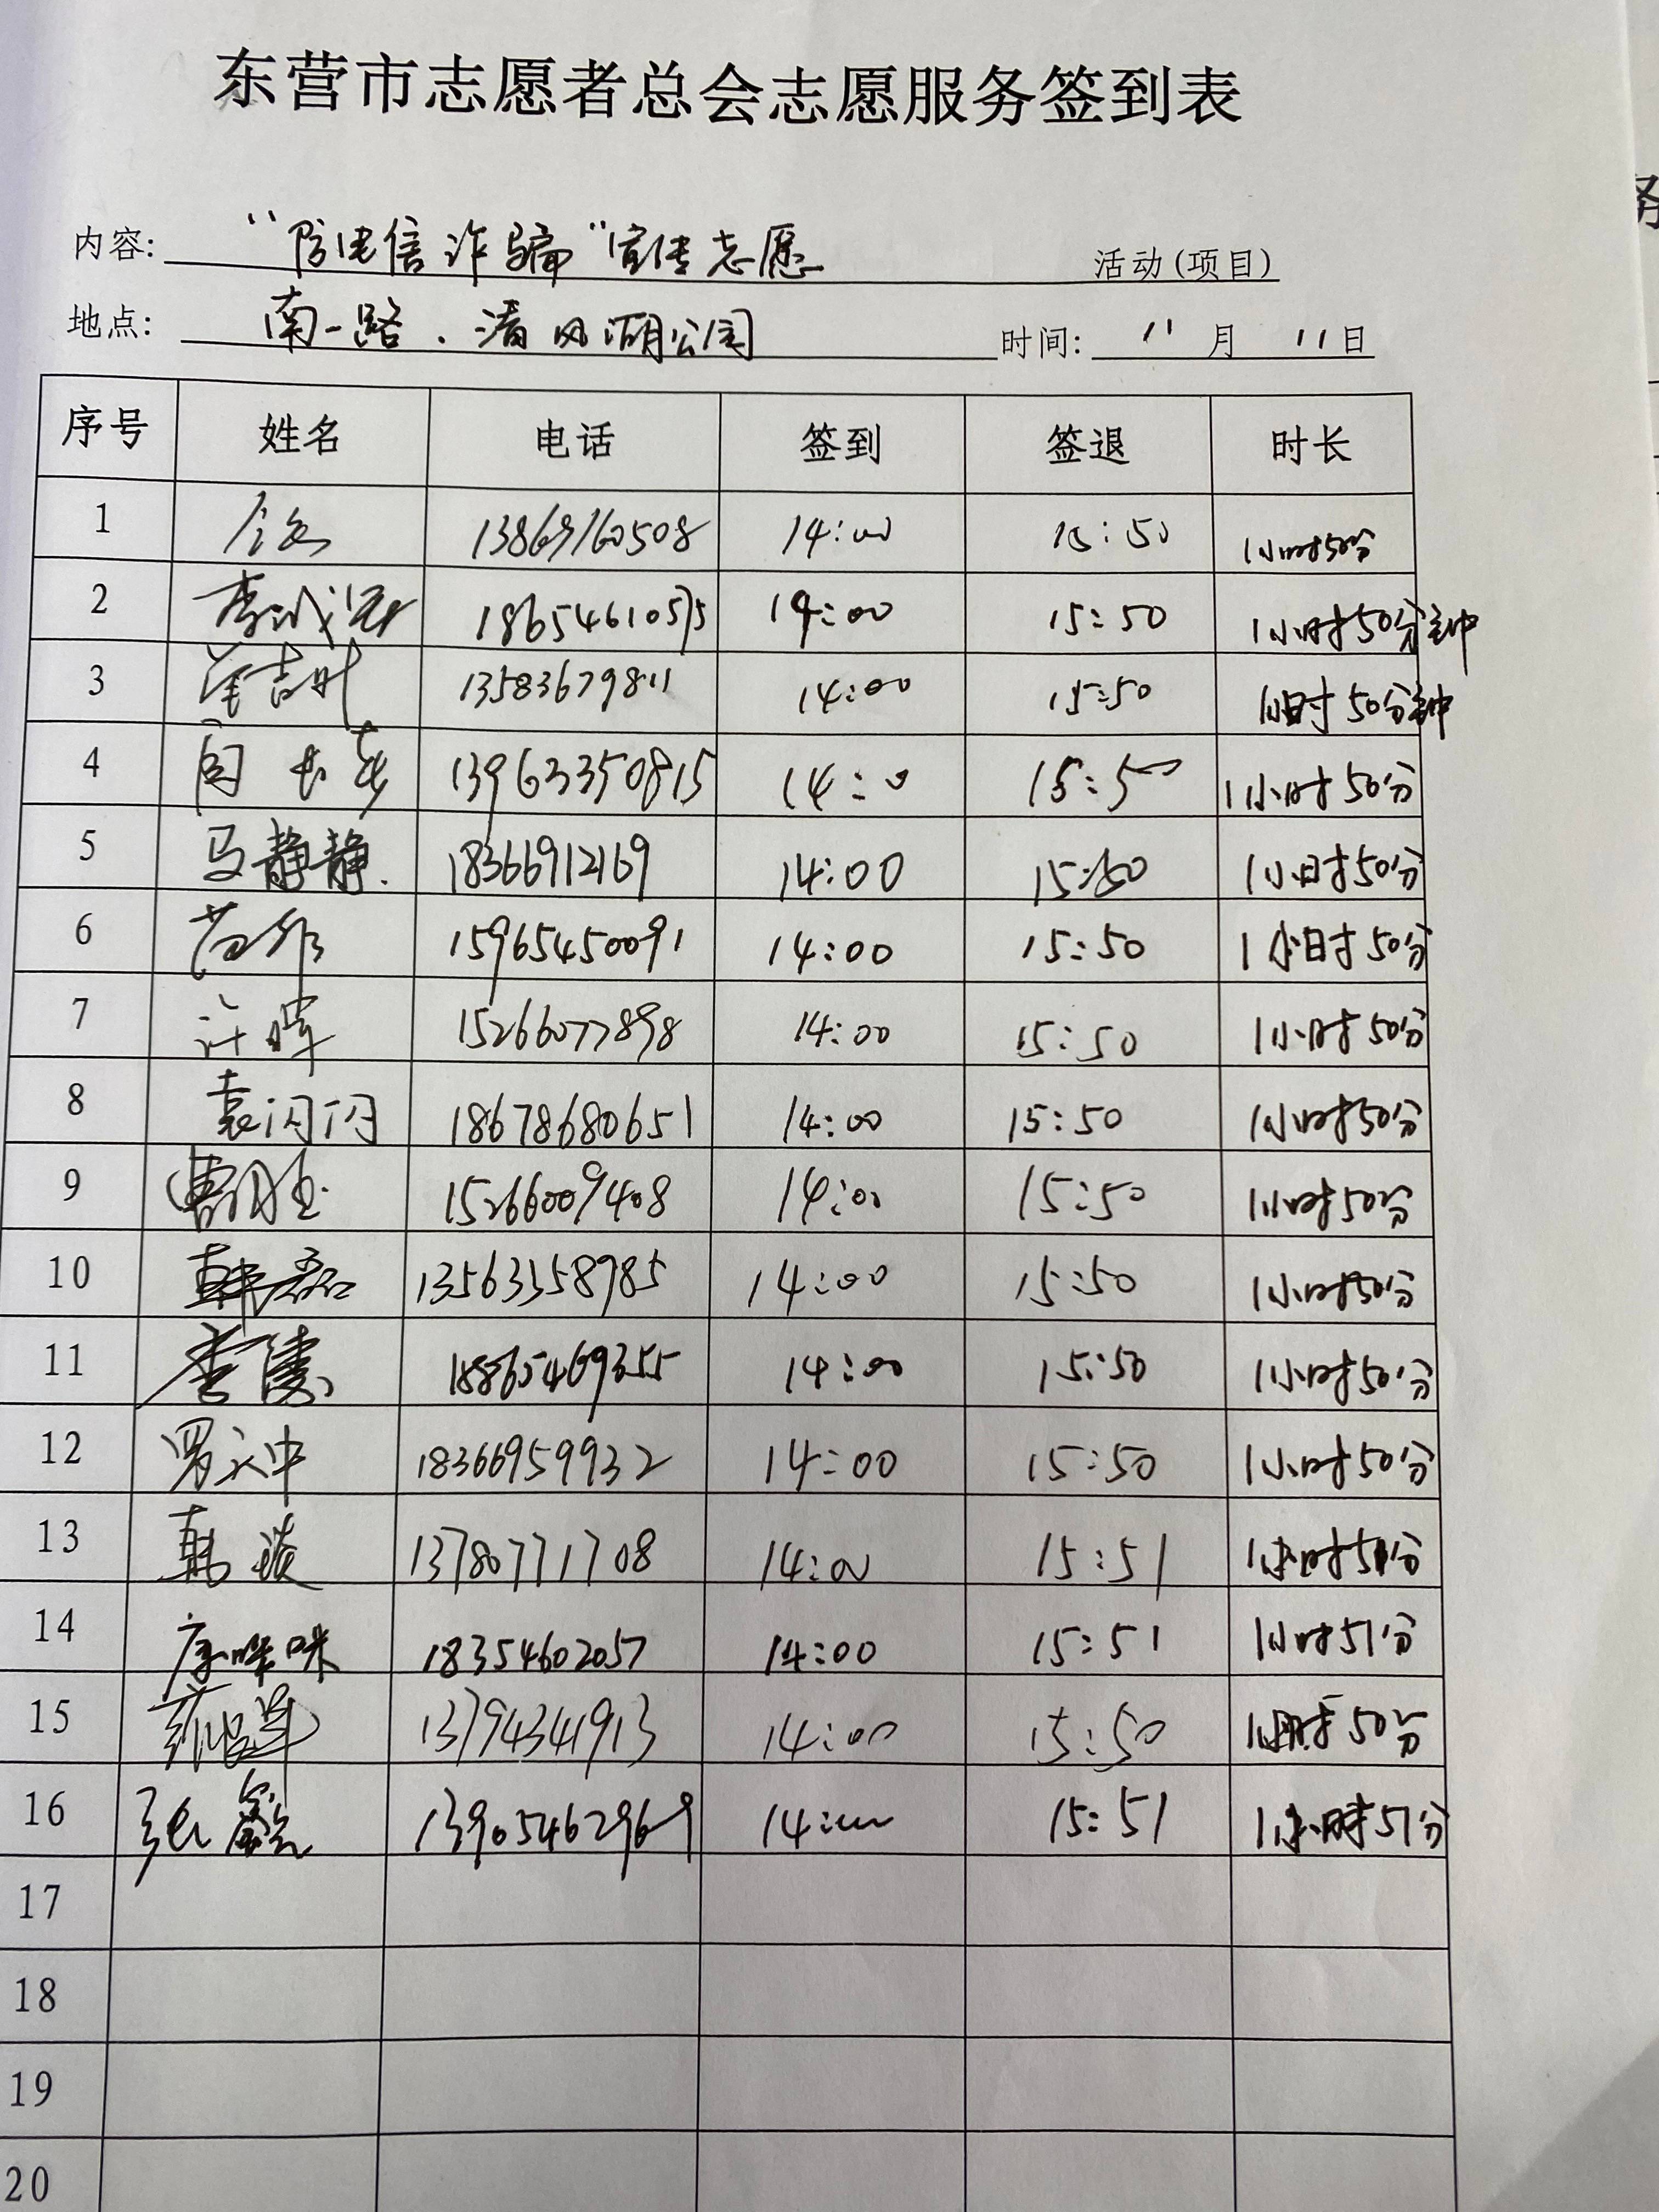 东营市志愿者总会志愿服务签到表
内容: "防电信诈骗"宣传志愿 活动(项目)
地点: 南一路.清风湖公园 时间: 11月11日
序号 姓名 电话 签到 签退 时长
1 13869160508 14:00 15:50 1小时50分
2 14:00 15:50 1小时50分钟
3 13583679811 14:00 15:50 1小时50分钟
4 13963350815 14:0 15:50 1小时50分
5 马静静. 18366912169 14:00 15:50 1小时50分
6 15965450091 14:00 15:50 1小时50分
7 15266077898 14:00 15:50 1小时50分
8 袁闪闪 18678680651 14:00 15:50 1小时50分
9 15266009408 14:00 15:50 1小时50分
10 13563358985 14:00 15:50 1小时50分
11 李倩 18865469355 14:00 15:50 1小时50分
12 18366959932 14:00 15:50 1小时50分
13 13780771708 14:00 15:51 1小时51分
14 18354602057 14:00 15:51 1小时51分
15 13794341913 14:00 15:50 1小时50分
16 张鑫 13905462969 14:00 15:51 1小时51分
17
18
19
20
务